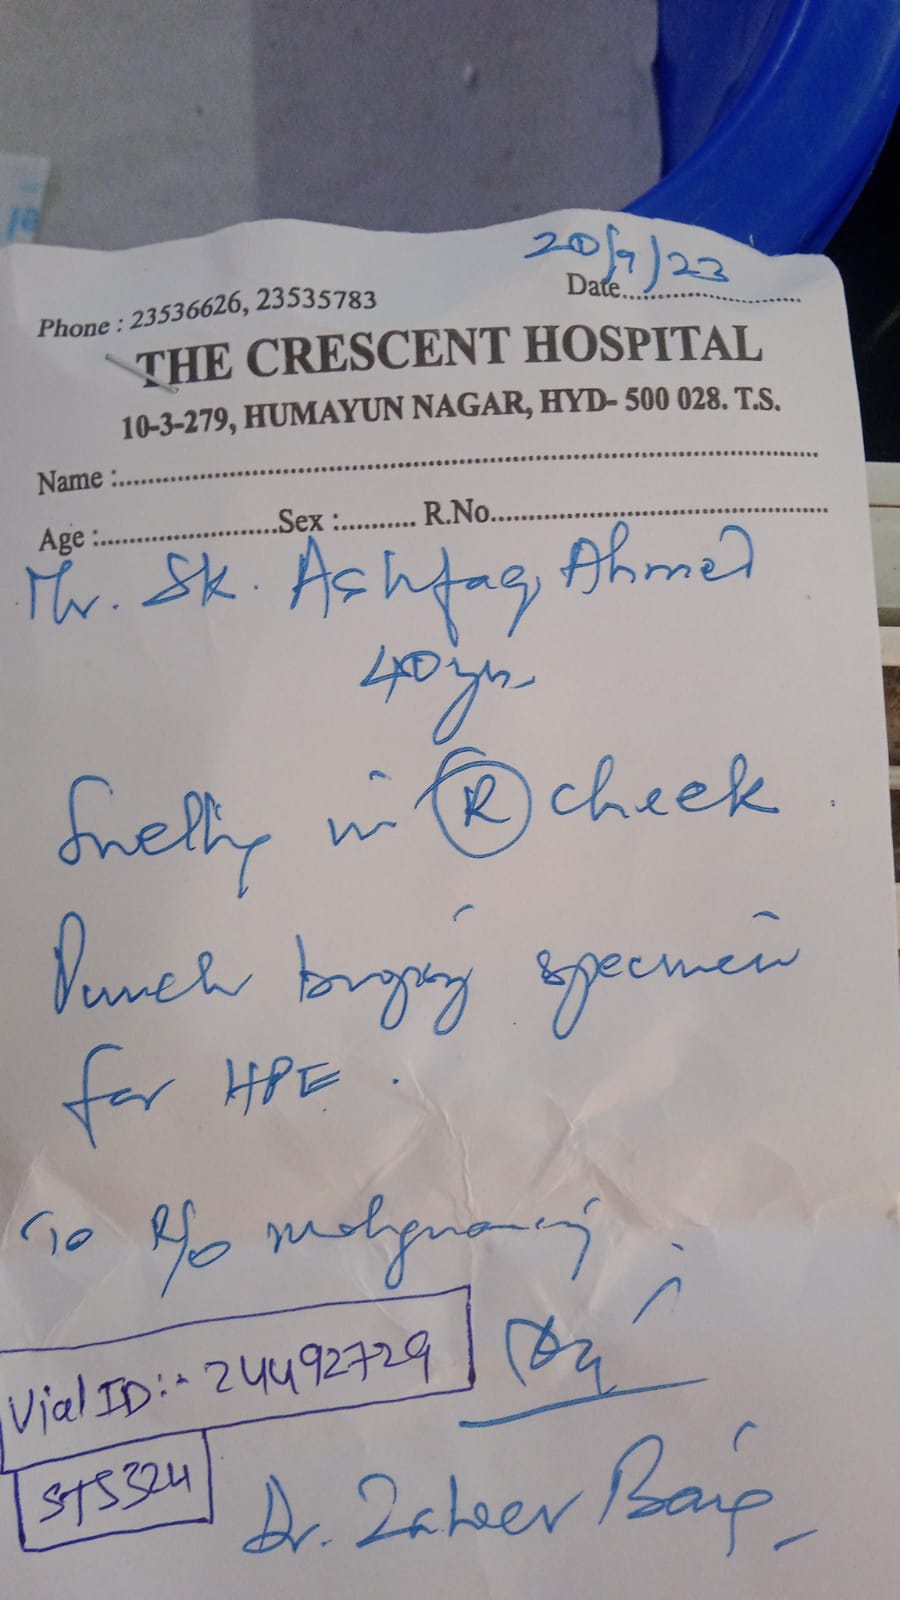 20/9/23
Phone : 23536626, 23535783 Date
THE CRESCENT HOSPITAL
10-3-279, HUMAYUN NAGAR, HYD- 500 028. T.S.
Name :
Age : Sex : R.No.
Mr. Sk. Ashfaq Ahmed
40 yrs
Swelling in R cheek.
Punch biopsy specimen
for HPE.
To R/o malignancy.
Vial ID:- 24492729
STS324
Dr. Zaheer Baig